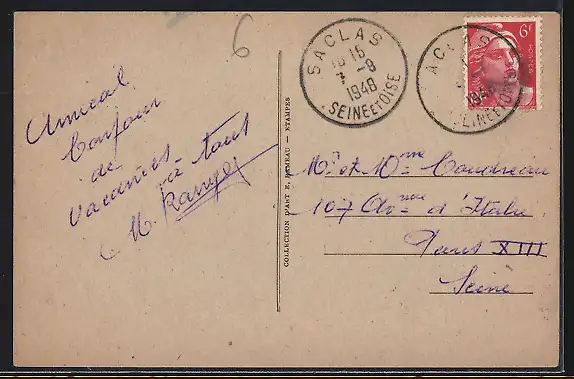 6
Amical
bonjour
de
vacances
à tous
M. Ranger
COLLECTION D'ART E. RAMEAU — ETAMPES
SACLAS
18 15
7 - 8
1948
SEINE ET OISE
SACLAS
1948
SEINE ET OISE
6F
Mr et Mme Coudreau
107 Ave d'Italie
Paris XIII
Seine